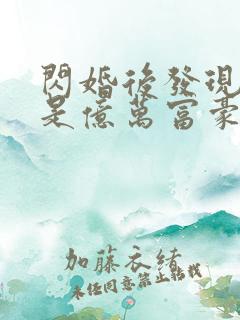 閃婚後發現
是億萬富豪
加藤衣緒
未经同意禁止转载